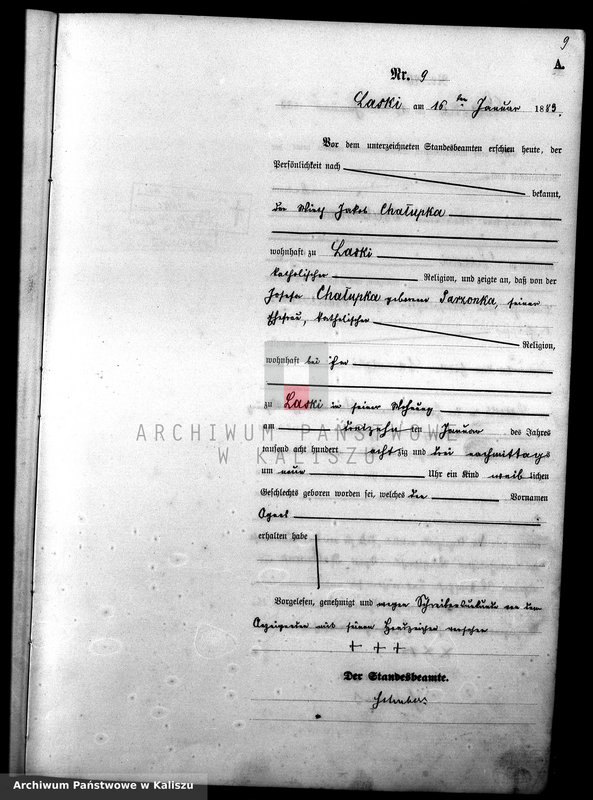 9
A.
Nr. 9
Laski am 16ten Januar 1883.
Vor dem unterzeichneten Standesbeamten erschien heute, der
Persönlichkeit nach
bekannt,
der Wirth Jakob Chałupka
wohnhaft zu Laski
katholischer Religion, und zeigte an, daß von der
Josefa Chałupka geborene Parzonka, seiner
Ehefrau, katholischer
Religion,
wohnhaft bei ihm
zu Laski in seiner Wohnung
am dreizehnten Januar des Jahres
tausend acht hundert achtzig und drei nachmittags
um neun Uhr ein Kind weiblichen
Geschlechts geboren worden sei, welches den Vornamen
erhalten habe
Vorgelesen, genehmigt und wegen Schreibensunkunde von dem
Anzeigenden mit seinem Handzeichen versehen
+ + +
Der Standesbeamte.
ARCHIWUM PAŃSTWOWE
W KALISZU
Archiwum Państwowe w Kaliszu